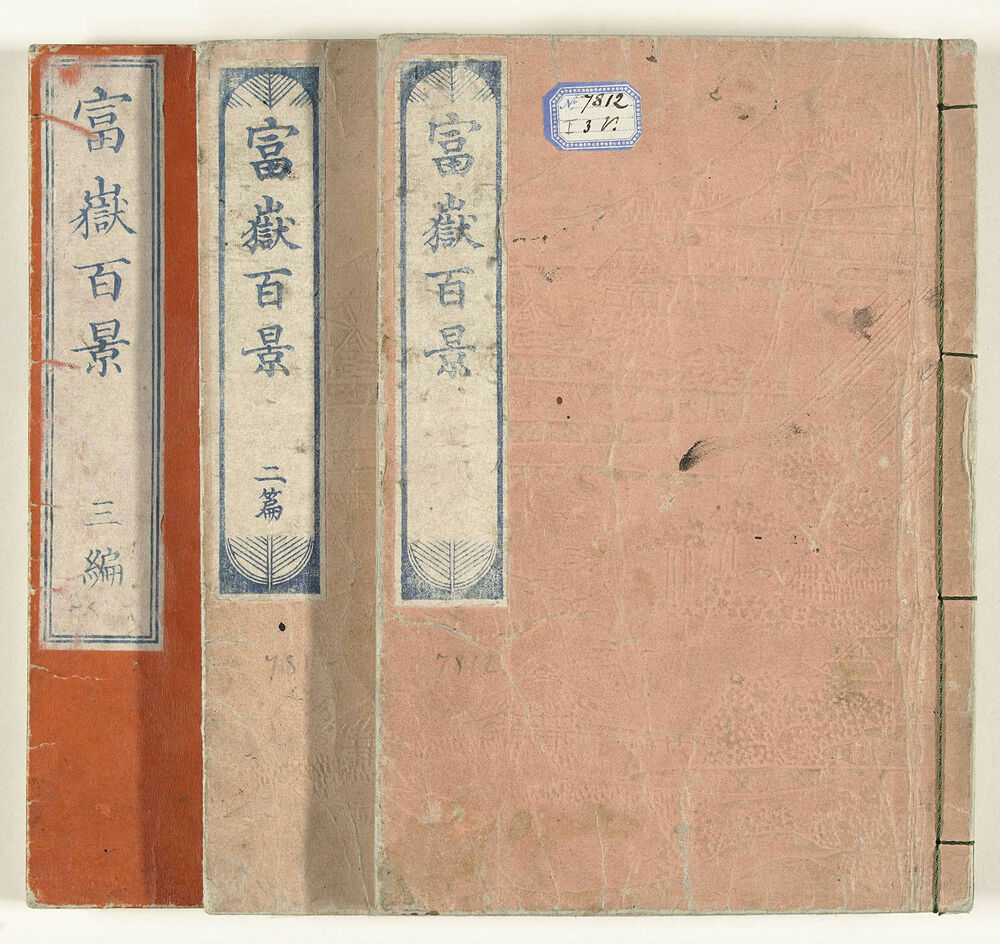 富嶽百景
三編
富嶽百景
二篇
富嶽百景
№ 7812
I 3 V.
781
7812